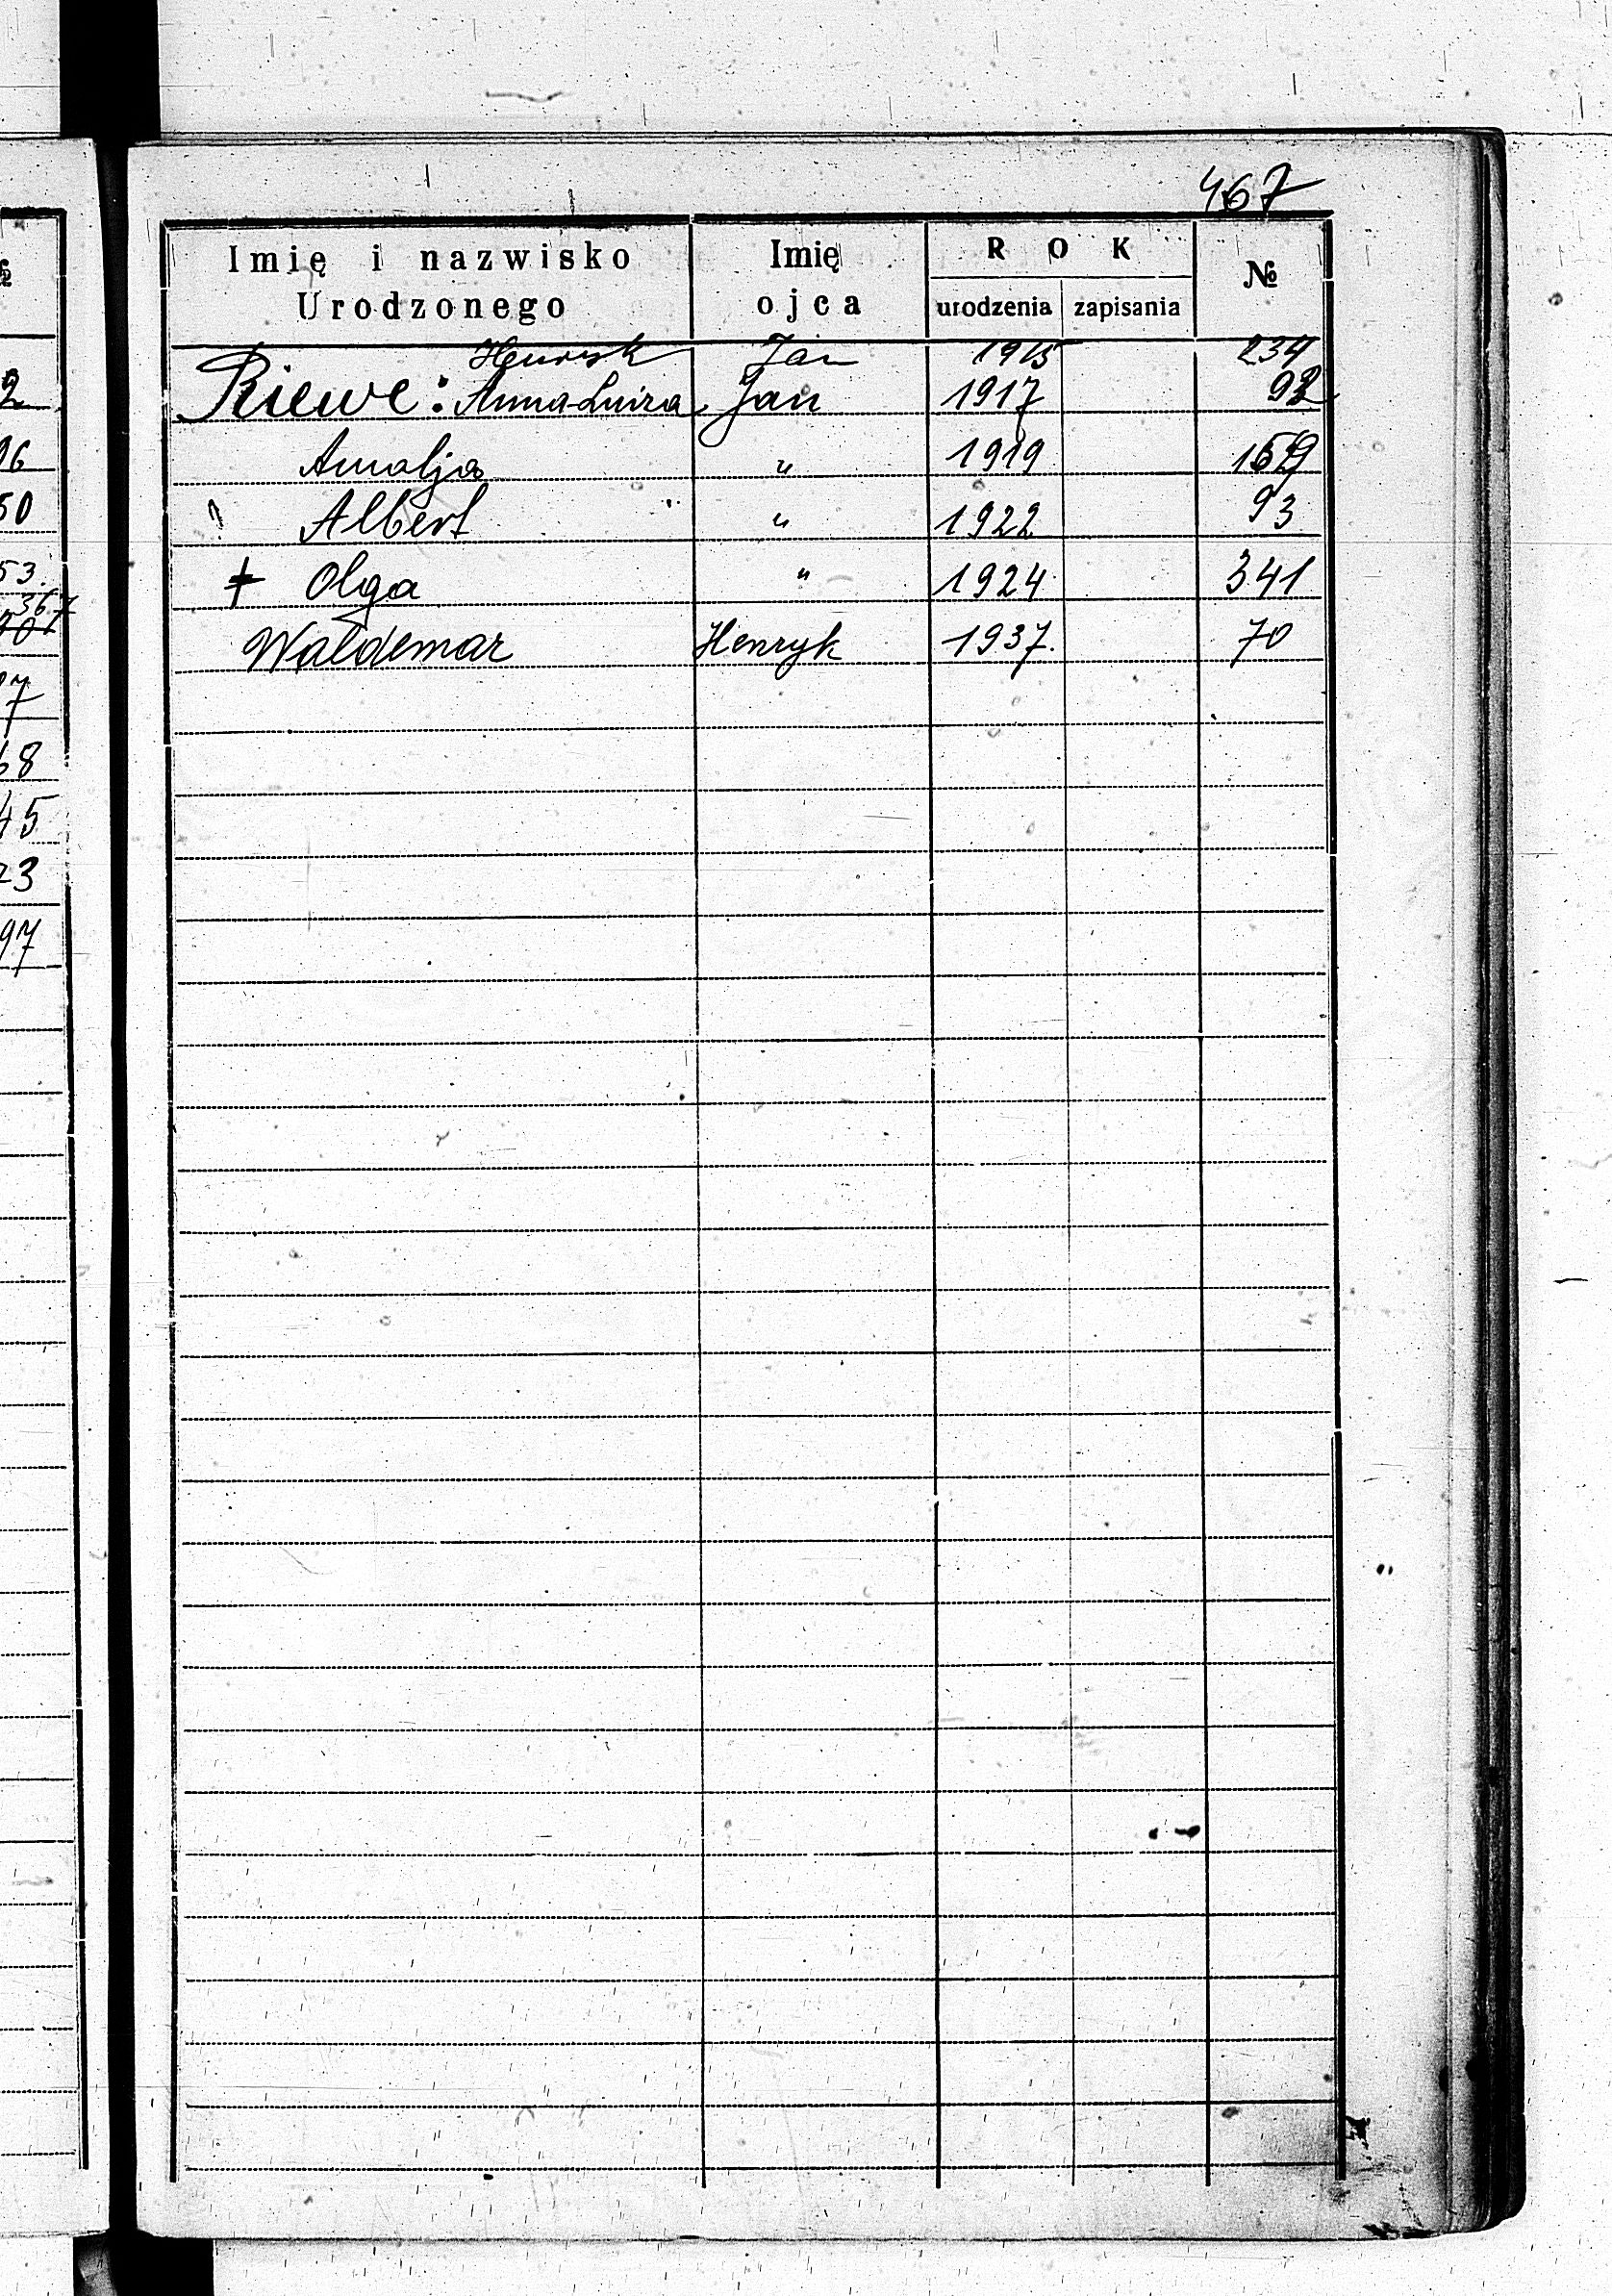 467
Imię i nazwisko Urodzonego Imię ojca ROK urodzenia zapisania №
Henryk Jan 1915 234
Riewe: Anna-Luiza Jan 1917 92
Amalja " 1919 159
Albert " 1922 93
+ Olga " 1924 341
Waldemar Henryk 1937. 70
2
96
50
53.
367
07
97
68
45
23
97